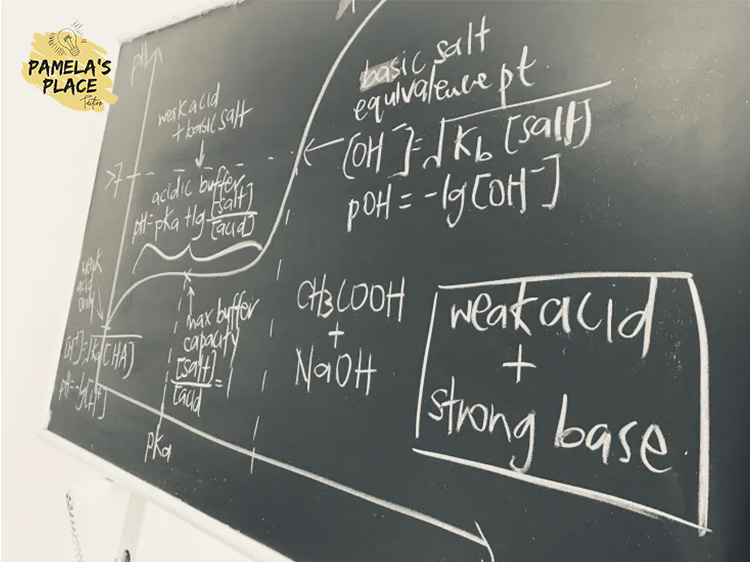 PAMELA'S
PLACE
Tuition
pH
weak acid
+ basic salt
>7
acidic buffer
pH=pKa+lg [salt]/[acid]
weak
acid
only
[H+]=√Ka[HA]
pH=-lg[H+]
max buffer
capacity
[salt]/[acid]=1
pKa
basic salt
equivalence pt
[OH-]=√Kb [salt]
pOH=-lg[OH-]
CH3COOH
+
NaOH
weak acid
+
strong base